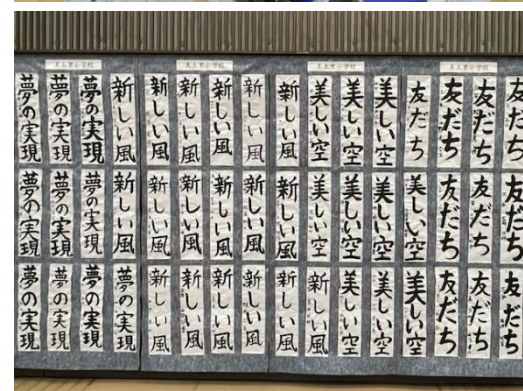 美土里小学校
美土里小学校
美土里小学校
美土里小学校
夢の実現
夢の実現
夢の実現
新しい風
新しい風
新しい風
新しい風
新しい風
新しい風
美しい空
美しい空
美しい空
友だち
友だち
友だち
友だち
夢の実現
夢の実現
夢の実現
新しい風
新しい風
新しい風
新しい風
新しい風
新しい風
美しい空
美しい空
美しい空
美しい空
友だち
友だち
友だち
夢の実現
夢の実現
夢の実現
夢の実現
新しい風
新しい風
新しい風
新しい風
新しい風
新しい風
美しい空
美しい空
美しい空
友だち
友だち
友だち